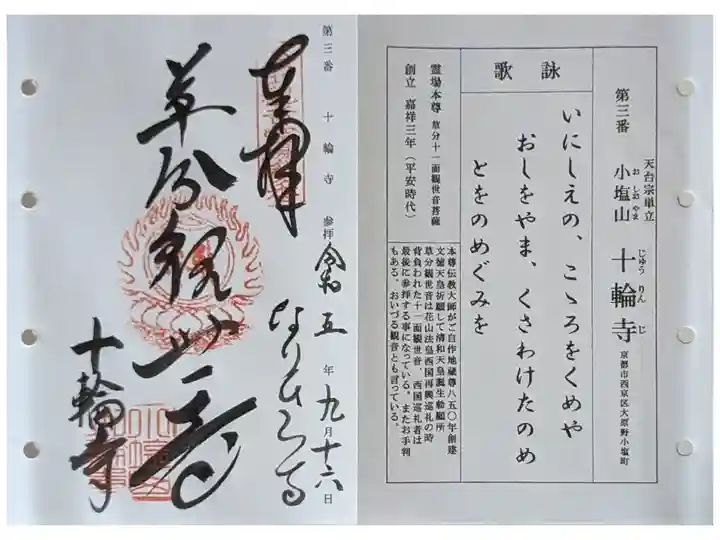 第三番
十輪寺
参拝
奉拝
令和五年九月十六日
なりひら寺
草分観世音
十輪寺
第三番
天台宗単立
小塩山
おしおやま
十輪寺
じゅうりんじ
京都市西京区大原野小塩町
詠歌
いにしえの、こゝろをくめや
おしをやま、くさわけたのめ
とをのめぐみを
霊場本尊 草分十一面観世音菩薩
創立 嘉祥三年（平安時代）
本尊伝教大師がご自作地蔵尊八五〇年創建
文徳天皇祈願して清和天皇誕生勅願所
草分観世音は花山法皇西国再興巡礼の時
背負われた十一面観世音、西国巡礼者は
最後に参拝する事になっている。またお手判
もある。おいづる観音とも言っている。